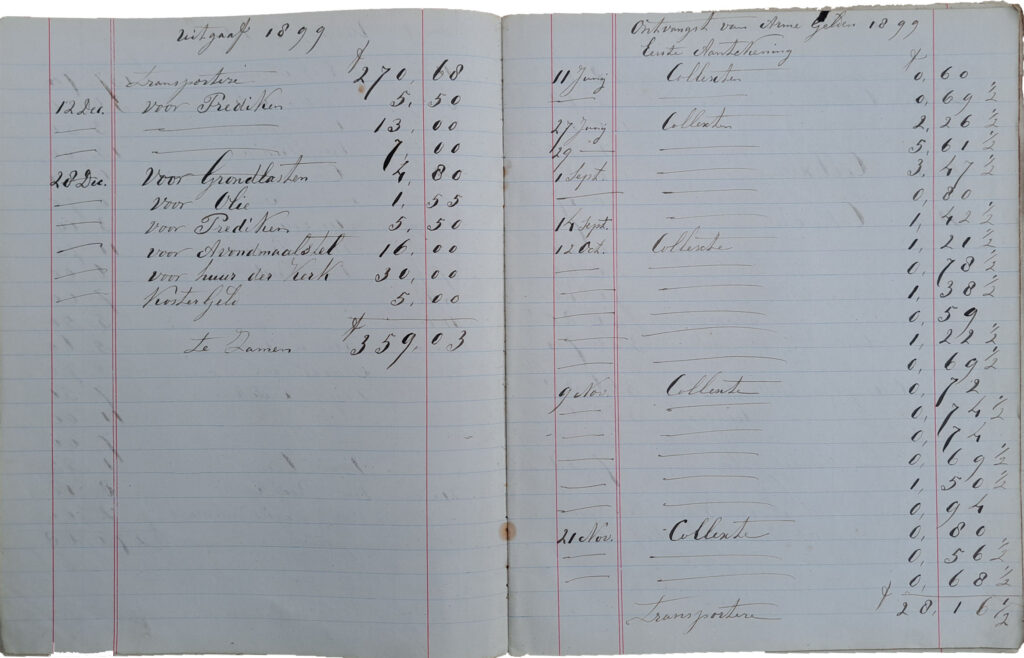 Uitgaaf 1899
Transportere ƒ 270,68
12 Dec. voor Prediken 5,50
— — 13,00
— — 7,00
28 Dec. voor Grondlasten 4,80
— voor Olie 1,55
— voor Prediken 5,50
— voor Avondmaalstel 16,00
— voor huur der Kerk 30,00
— Koster Geld 5,00
te Zamen ƒ 359,03
Ontvangst van Arme Gelden 1899
Eerste Aantekening
11 Junij Collekten ƒ 0,60
— — 0,69 1/2
27 Junij Collekten 2,26 1/2
29 — — 5,61 1/2
1 Sept. — 3,47 1/2
— — 0,80
14 Sept. — 1,42 1/2
12 Oct. Collekte 1,21 1/2
— — 0,78 1/2
— — 1,38 1/2
— — 0,59
— — 1,22 1/2
— — 0,69 1/2
9 Nov. Collekte 0,72
— — 0,74 1/2
— — 0,74
— — 0,69 1/2
— — 1,50 1/2
— — 0,94
21 Nov. Collekte 0,80
— — 0,56 1/2
— — 0,68 1/2
Transportere ƒ 28,16 1/2